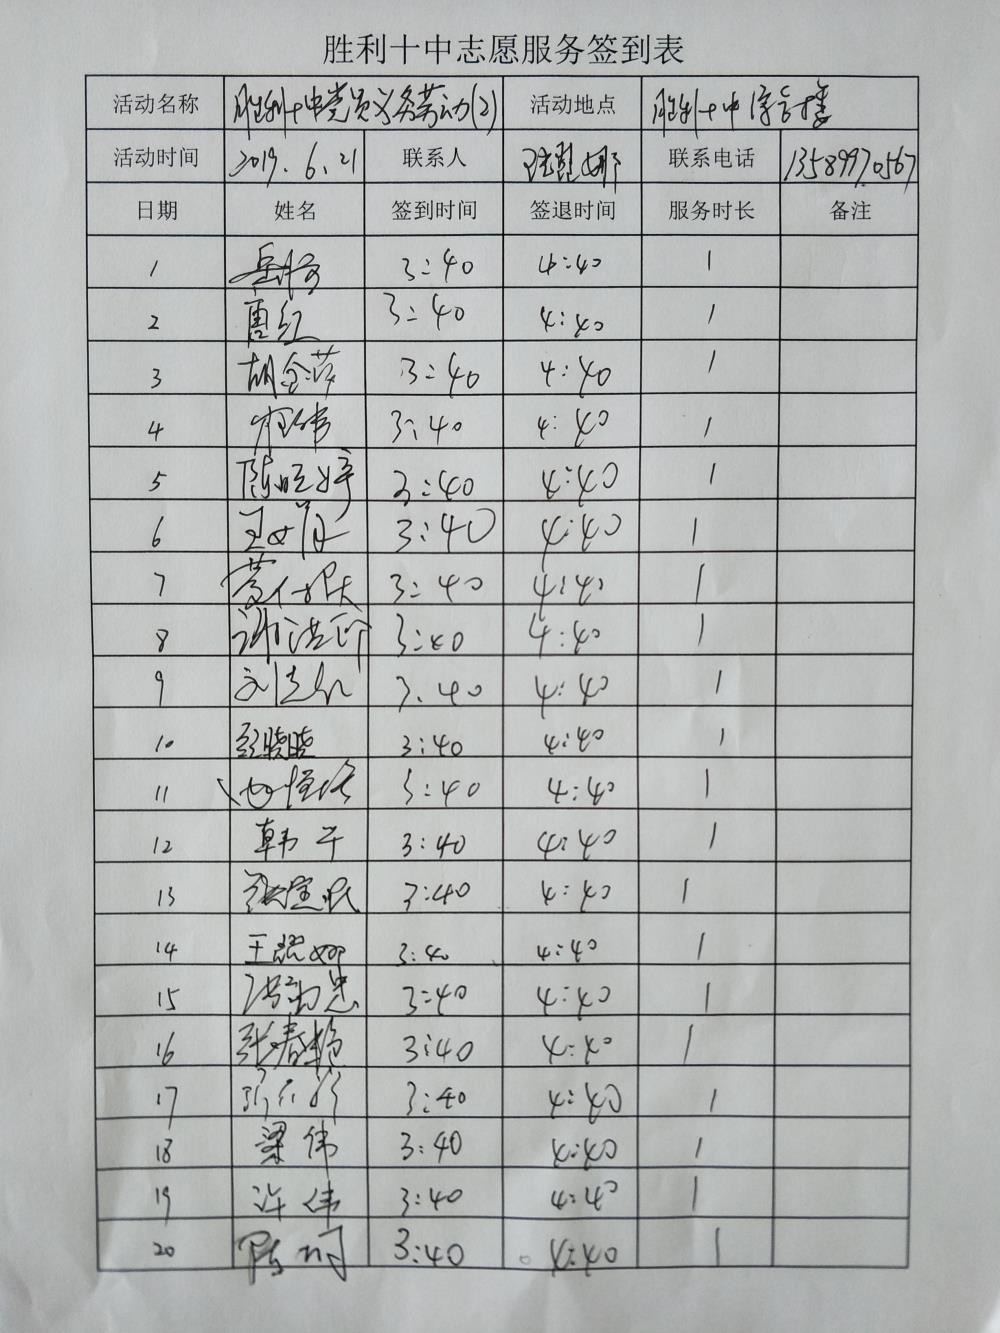 胜利十中志愿服务签到表
活动名称 胜利十中党员义务劳动(2) 活动地点 胜利十中
活动时间 2019.6.21 联系人 联系电话 13589970567
日期 姓名 签到时间 签退时间 服务时长 备注
1 3:40 4:40 1
2 唐红 3:40 4:40 1
3 胡金萍 3:40 4:40 1
4 3:40 4:40 1
5 陈晓婷 3:40 4:40 1
6 3:40 4:40 1
7 3:40 4:40 1
8 3:40 4:40 1
9 3:40 4:40 1
10 彭晓晓 3:40 4:40 1
11 3:40 4:40 1
12 韩 3:40 4:40 1
13 3:40 4:40 1
14 3:40 4:40 1
15 3:40 4:40 1
16 张春艳 3:40 4:40 1
17 3:40 4:40 1
18 梁伟 3:40 4:40 1
19 许伟 3:40 4:40 1
20 3:40 4:40 1